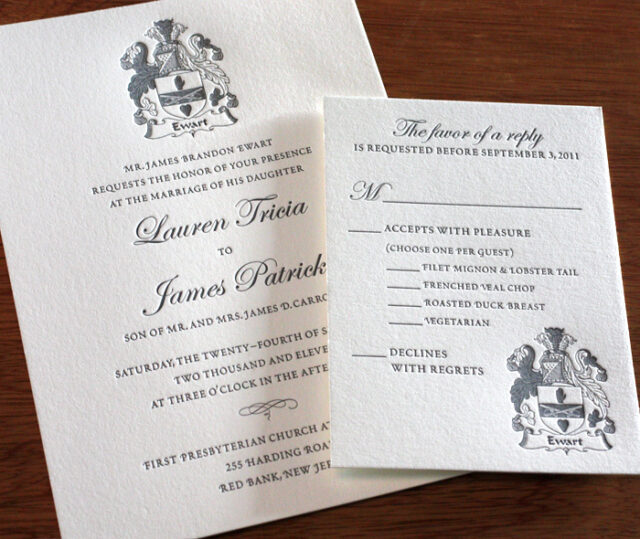 Ewart
MR. JAMES BRANDON EWART
REQUESTS THE HONOR OF YOUR PRESENCE
AT THE MARRIAGE OF HIS DAUGHTER
Lauren Tricia
TO
James Patrick
SON OF MR. AND MRS. JAMES D. CARRO
SATURDAY, THE TWENTY-FOURTH OF S
TWO THOUSAND AND ELEVE
AT THREE O'CLOCK IN THE AFTE
FIRST PRESBYTERIAN CHURCH AT
255 HARDING ROA
RED BANK, NEW JER
The favor of a reply
IS REQUESTED BEFORE SEPTEMBER 3, 2011
M
ACCEPTS WITH PLEASURE
(CHOOSE ONE PER GUEST)
FILET MIGNON & LOBSTER TAIL
FRENCHED VEAL CHOP
ROASTED DUCK BREAST
VEGETARIAN
DECLINES
WITH REGRETS
Ewart